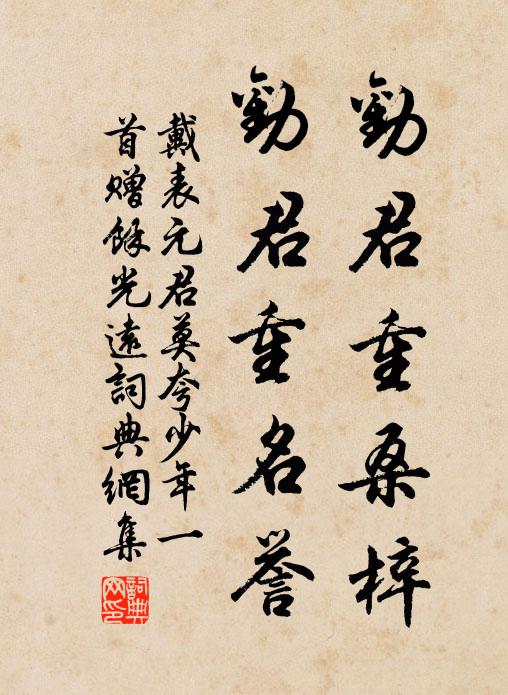 勸君重桑梓
勸君重名譽
戴表元君莫夸少年一
首贈餘光遠詞典網集
詞典
网印